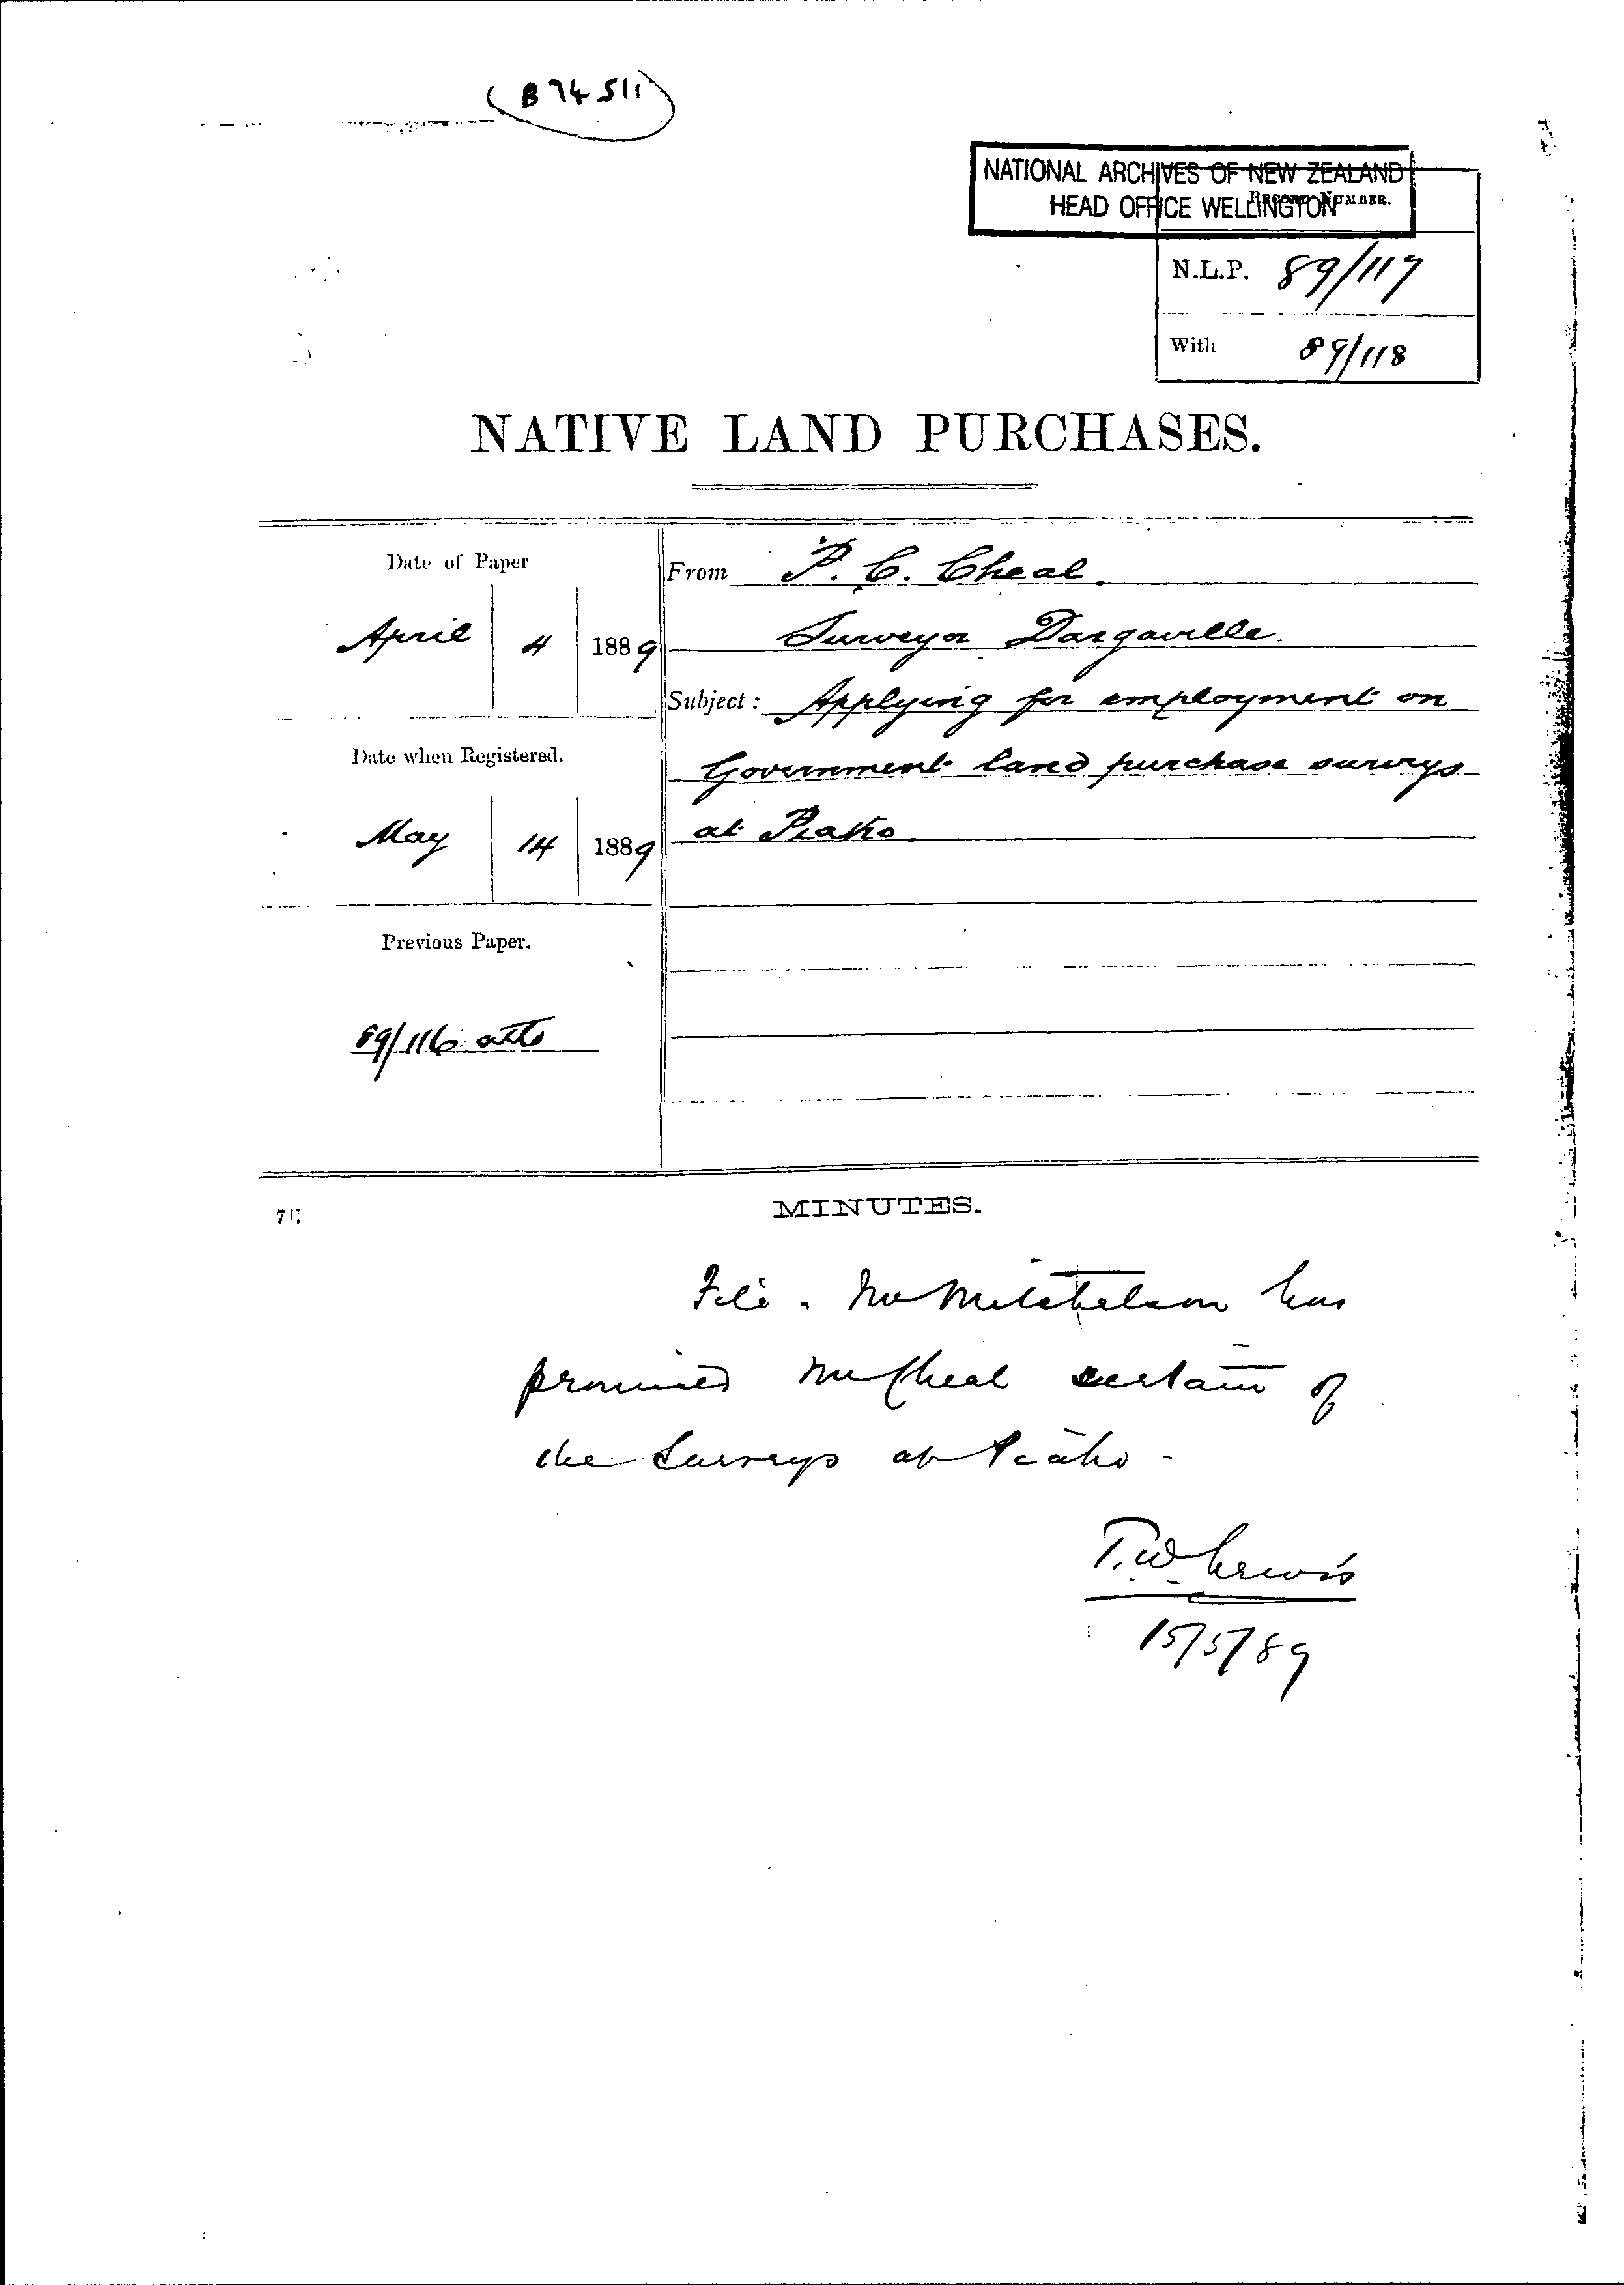 B 74 511
NATIONAL ARCHIVES OF NEW ZEALAND
HEAD OFFICE WELLINGTON
RECORD NUMBER.
N.L.P. 89/117
With 89/118
NATIVE LAND PURCHASES.
Date of Paper
April 4 1889
Date when Registered.
May 14 1889
Previous Paper.
89/116
From P. C. Cheal.
Surveyor Dargaville.
Subject: Applying for employment on
Government land purchase surveys
at Piako.
MINUTES.
File. Mr Mitchelson has
promised Mr Cheal certain of
the Surveys at Piako -
T.W. Lewis
15/5/89